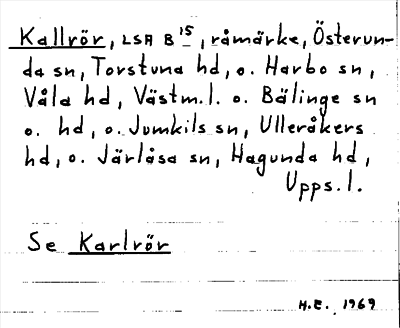 Kallrör, LSA B 15, råmärke, Österun-
da sn, Torstuna hd, o. Harbo sn,
Våla hd, Västm.l. o. Bälinge sn
o. hd, o. Jumkils sn, Ulleråkers
hd, o. Järlåsa sn, Hagunda hd,
Upps.l.
Se Karlrör
H.E. 1969